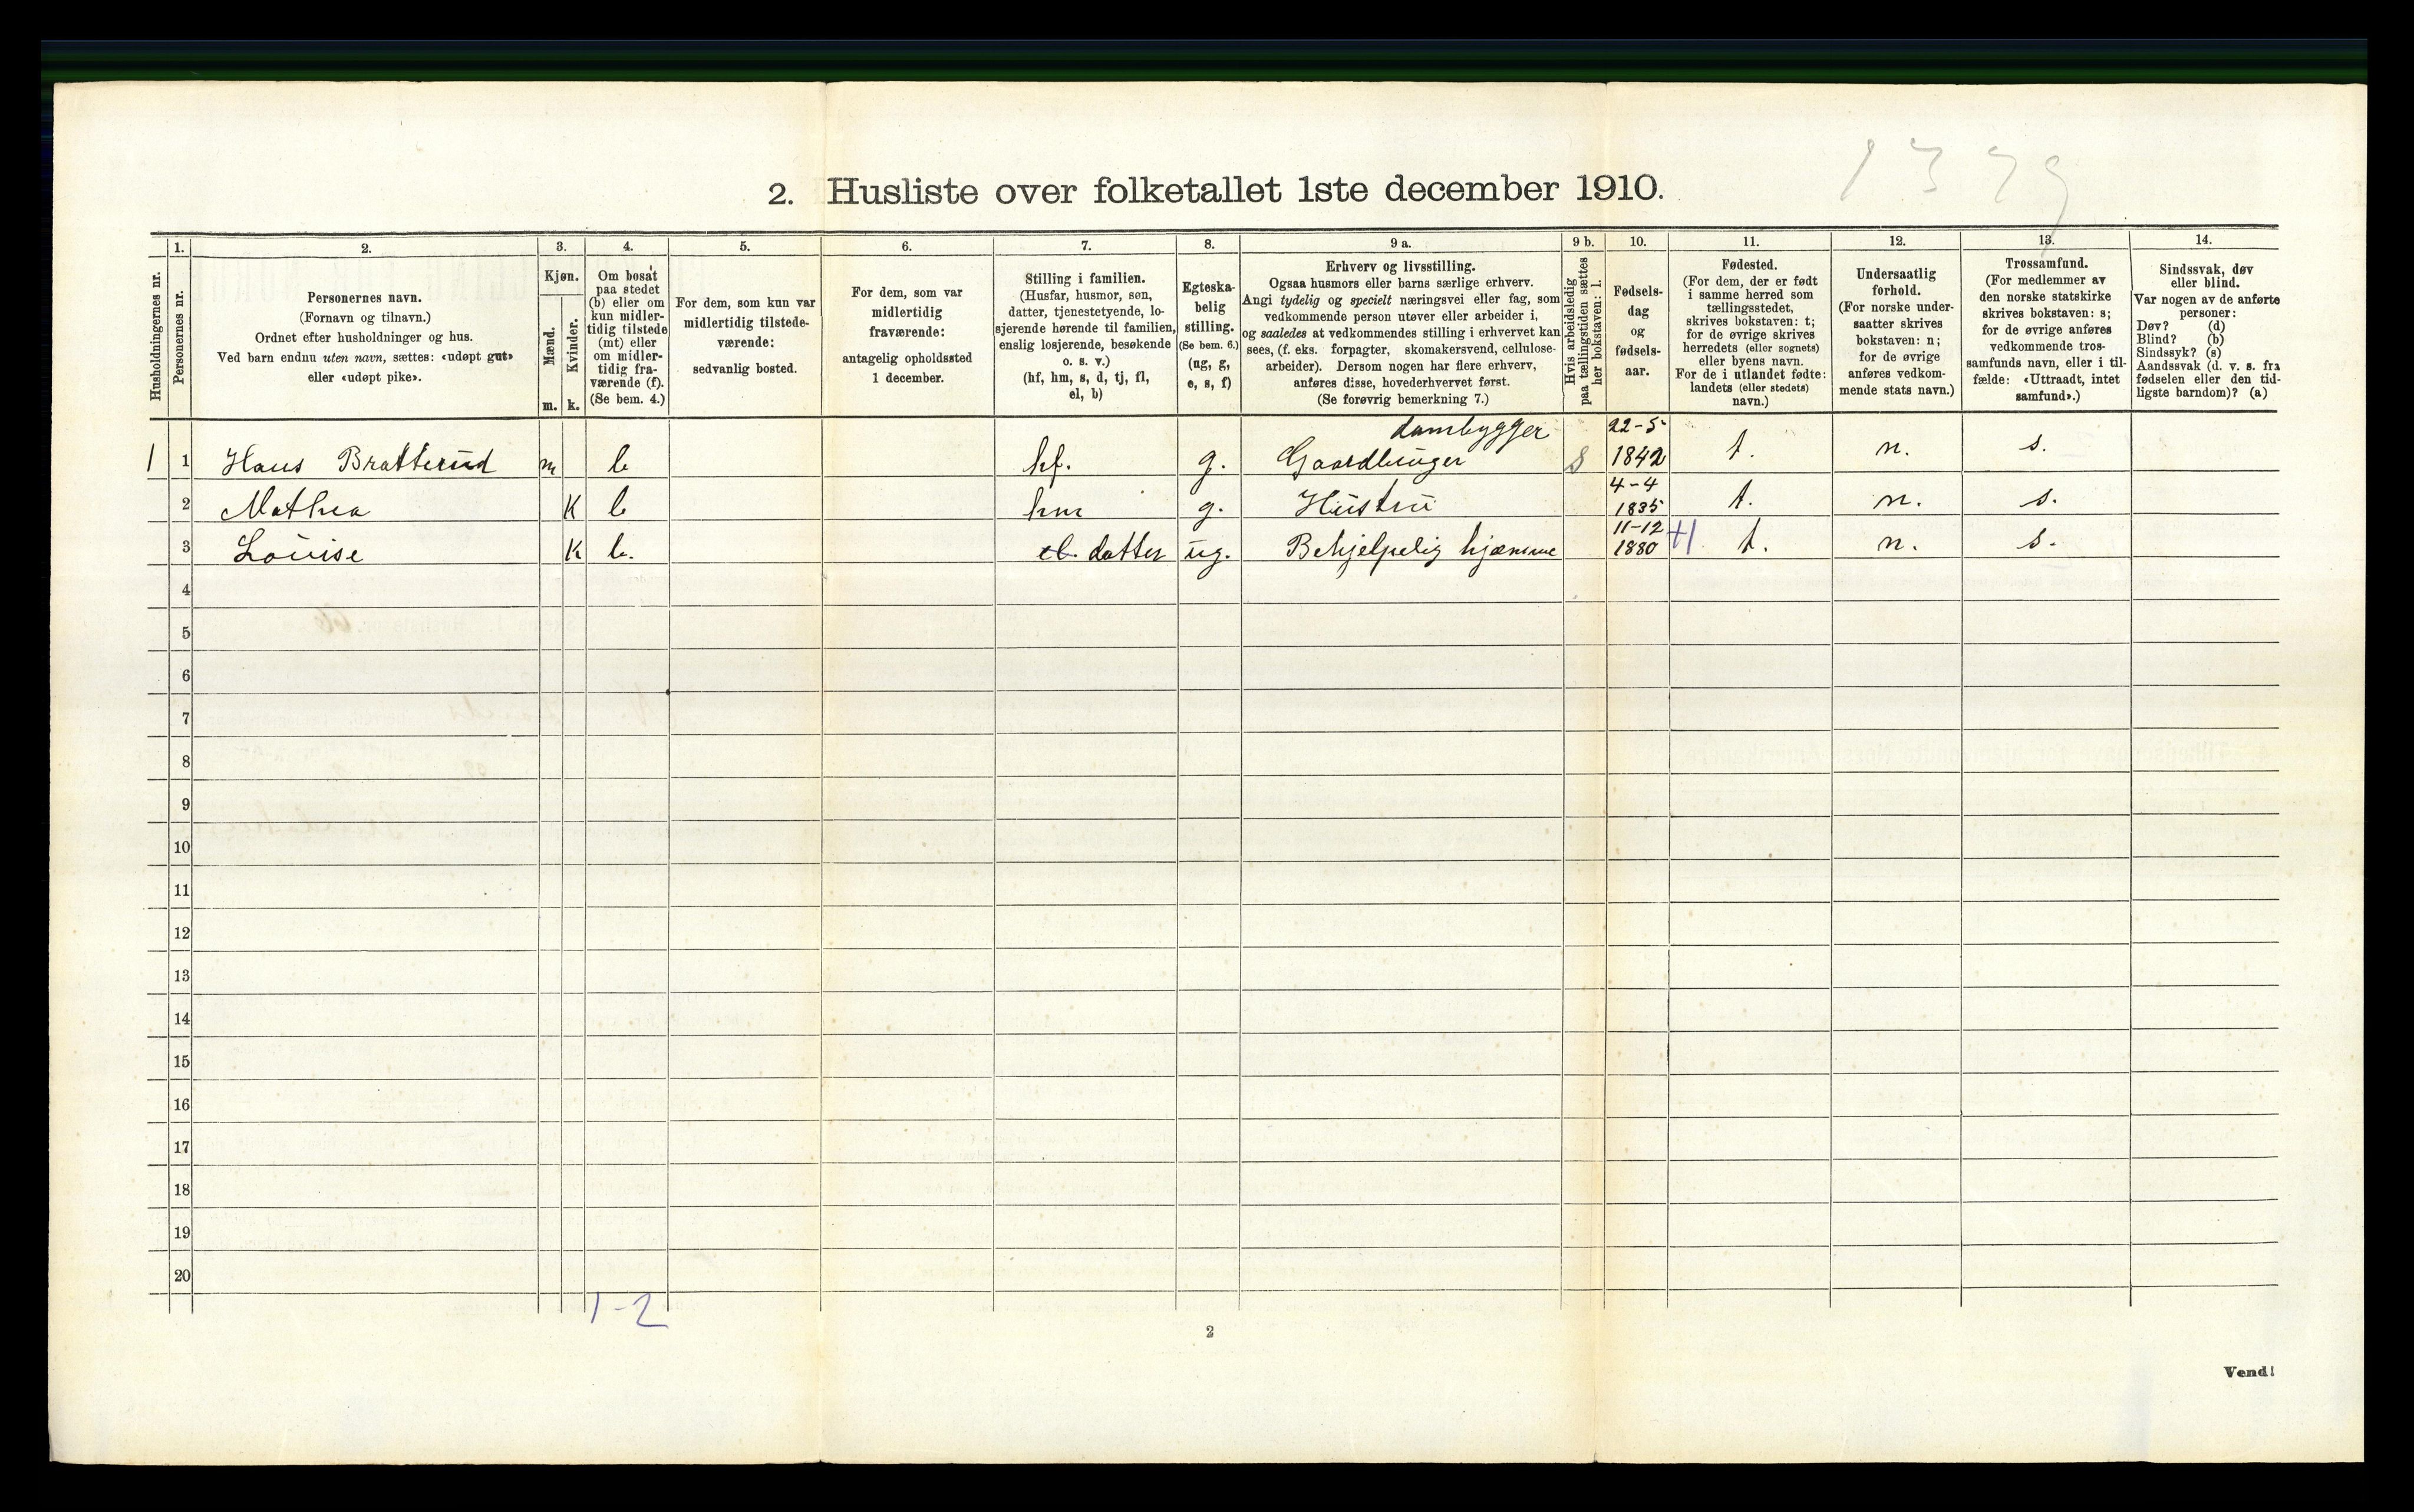 1379
2. Husliste over folketallet 1ste december 1910.
Husholdningernes nr.
1.
Personernes nr.
2.
Personernes navn.
(Fornavn og tilnavn.)
Ordnet efter husholdninger og hus.
Ved barn endnu uten navn, sættes: «udøpt gut»
eller «udøpt pike».
3.
Kjøn.
Mænd.
m.
Kvinder.
k.
4.
Om bosat
paa stedet
(b) eller om
kun midler-
tidig tilstede
(mt) eller
om midler-
tidig fra-
værende (f).
(Se bem. 4.)
5.
For dem, som kun var
midlertidig tilstede-
værende:
sedvanlig bosted.
6.
For dem, som var
midlertidig
fraværende:
antagelig opholdssted
1 december.
7.
Stilling i familien.
(Husfar, husmor, søn,
datter, tjenestetyende, lo-
sjerende hørende til familien,
enslig losjerende, besøkende
o. s. v.)
(hf, hm, s, d, tj, fl,
el, b)
8.
Egteska-
belig
stilling.
(Se bem. 6.)
(ug, g,
e, s, f)
9 a.
Erhverv og livsstilling.
Ogsaa husmors eller barns særlige erhverv.
Angi tydelig og specielt næringsvei eller fag, som
vedkommende person utøver eller arbeider i,
og saaledes at vedkommendes stilling i erhvervet kan
sees, (f. eks. forpagter, skomakersvend, cellulose-
arbeider). Dersom nogen har flere erhverv,
anføres disse, hovederhvervet først.
(Se forøvrig bemerkning 7.)
9 b.
Hvis arbeidsledig
paa tællingstiden sættes
her bokstaven: l.
10.
Fødsels-
dag
og
fødsels-
aar.
11.
Fødested.
(For dem, der er født
i samme herred som
tællingsstedet,
skrives bokstaven: t;
for de øvrige skrives
herredets (eller sognets)
eller byens navn.
For de i utlandet fødte:
landets (eller stedets)
navn.)
12.
Undersaatlig
forhold.
(For norske under-
saatter skrives
bokstaven: n;
for de øvrige
anføres vedkom-
mende stats navn.)
13.
Trossamfund.
(For medlemmer av
den norske statskirke
skrives bokstaven: s;
for de øvrige anføres
vedkommende tros-
samfunds navn, eller i til-
fælde: «Uttraadt, intet
samfund».)
14.
Sindssvak, døv
eller blind.
Var nogen av de anførte
personer:
Døv? (d)
Blind? (b)
Sindssyk? (s)
Aandssvak (d. v. s. fra
fødselen eller den tid-
ligste barndom)? (a)
dambygger 22-5
1 1 Hans Bratterud m b hf. g. Gaardbruger S 1842 t. n. s.
4-4
2 Mathea K b hm g. Hustru 1835 t. n. s.
11-12
3 Louise K b. el. datter ug. Behjelpelig hjemme 1880 t. n. s.
4
5
6
7
8
9
10
11
12
13
14
15
16
17
18
19
20
1-2
2
Vend!